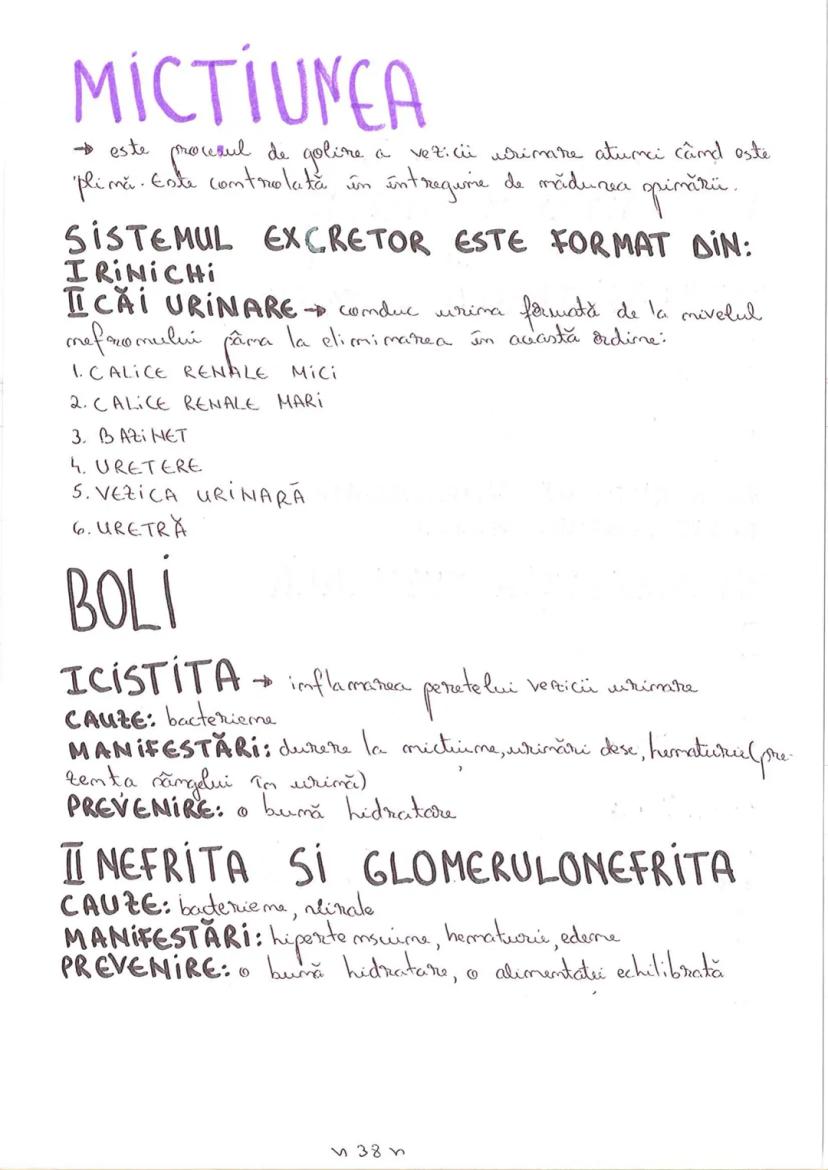 MICTIUNEA
→ este procesul de golire a vezicii urinare atunci când este
plină. Este controlată în întregime de măduva spinării.
SISTEMUL EXCRETOR ESTE FORMAT DIN:
I RINICHI
II CĂI URINARE → conduc urina formată de la nivelul
nefronului pâna la eliminarea în această ordine:
1. CALICE RENALE MICI
2. CALICE RENALE MARI
3. BAZINET
4. URETERE
5. VEZICA URINARĂ
6. URETRĂ
BOLI
I CISTITA → inflamarea peretelui vezicii urinare
CAUZE: bacteriene
MANIFESTĂRI: durere la micțiune, urinări dese, hematurie (pre-
zenta sângelui în urină)
PREVENIRE: o bună hidratare
II NEFRITA SI GLOMERULONEFRITA
CAUZE: bacteriene, virale
MANIFESTĂRI: hipertensiune, hematurie, edeme
PREVENIRE: o bună hidratare, o alimentație echilibrată
~ 38 ~